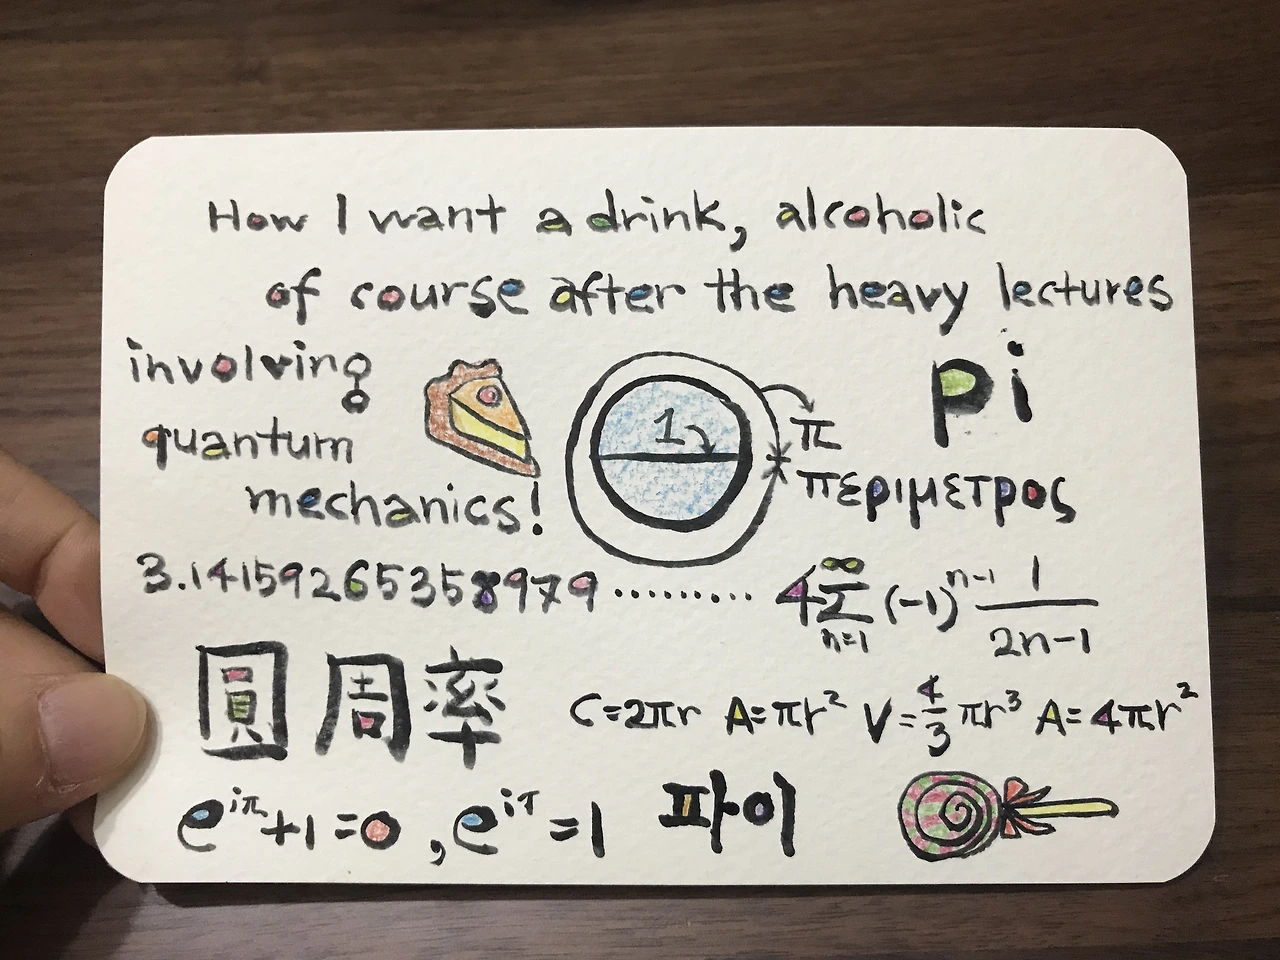 How I want a drink, alcoholic
of course after the heavy lectures
involving
quantum
mechanics!
1
π
pi
περιμετρος
3.14159265358979.........
4∑(n=1 to ∞) (-1)^(n-1) 1/(2n-1)
圓周率
C=2πr A=πr² V=4/3 πr³ A=4πr²
e^(iπ)+1=0, e^(iτ)=1
파이